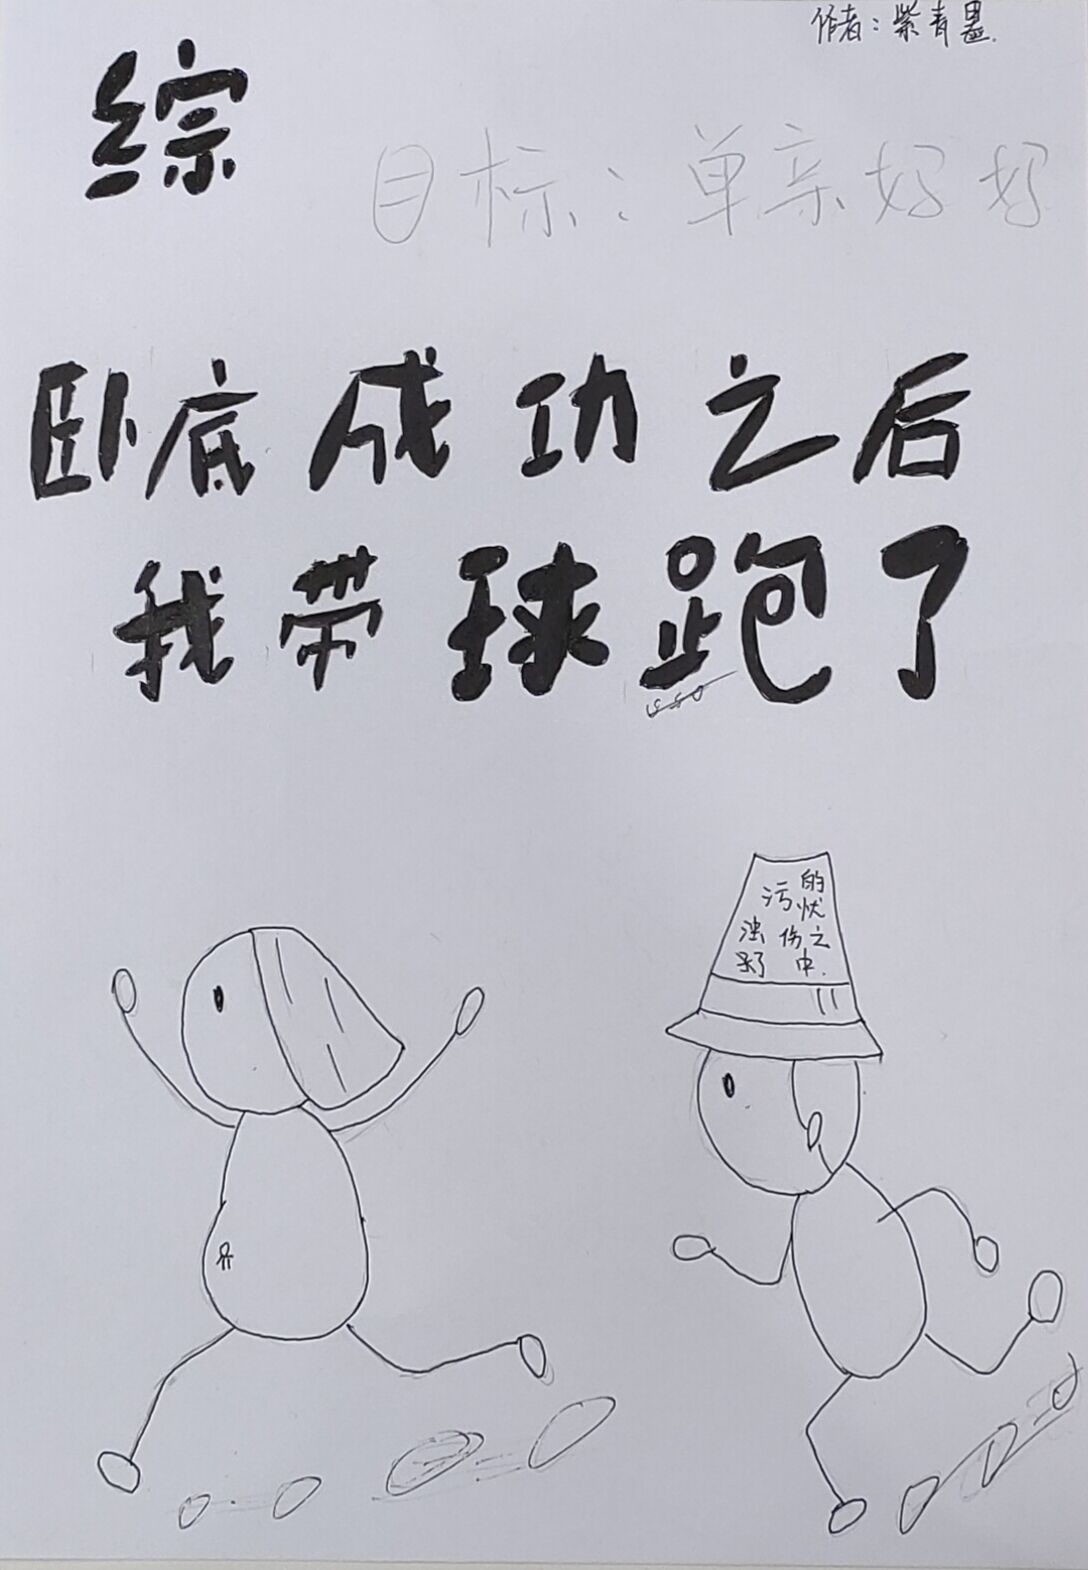 作者：紫青墨
综
目标：单亲好好
卧底成功之后
我带球跑了
的忧之中
污伤
浊